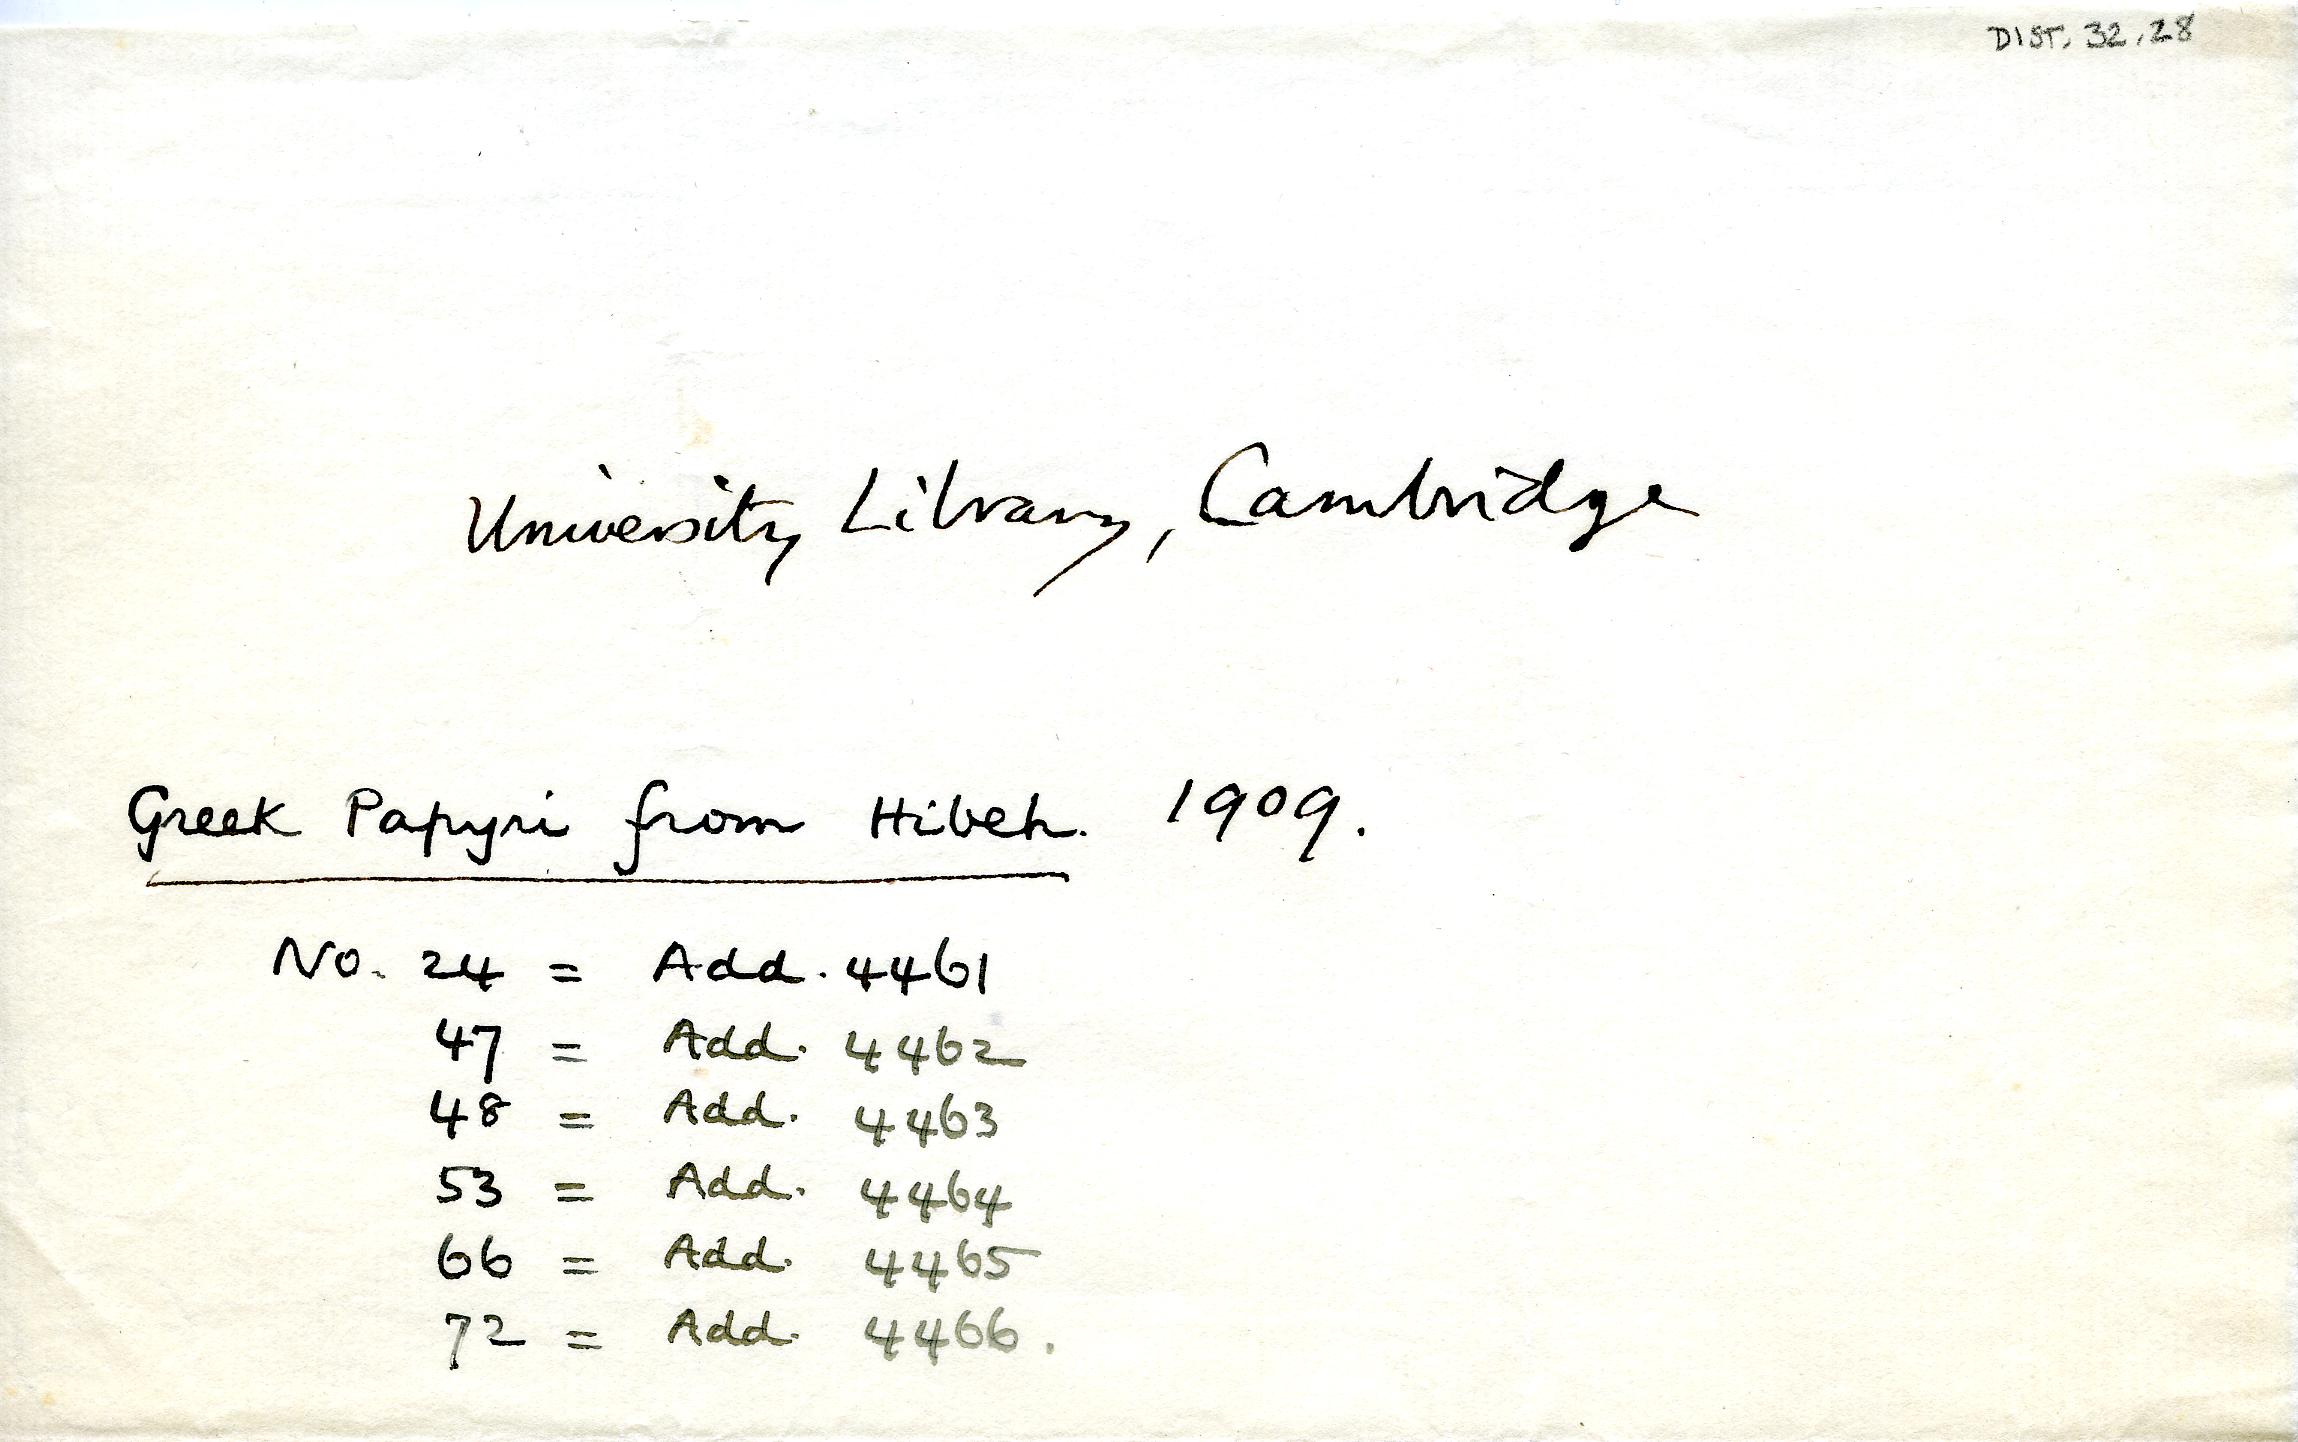 DIST. 32.28
University Library, Cambridge
Greek Papyri from Hibeh. 1909.
No. 24 = Add. 4461
47 = Add. 4462
48 = Add. 4463
53 = Add. 4464
66 = Add. 4465
72 = Add. 4466.